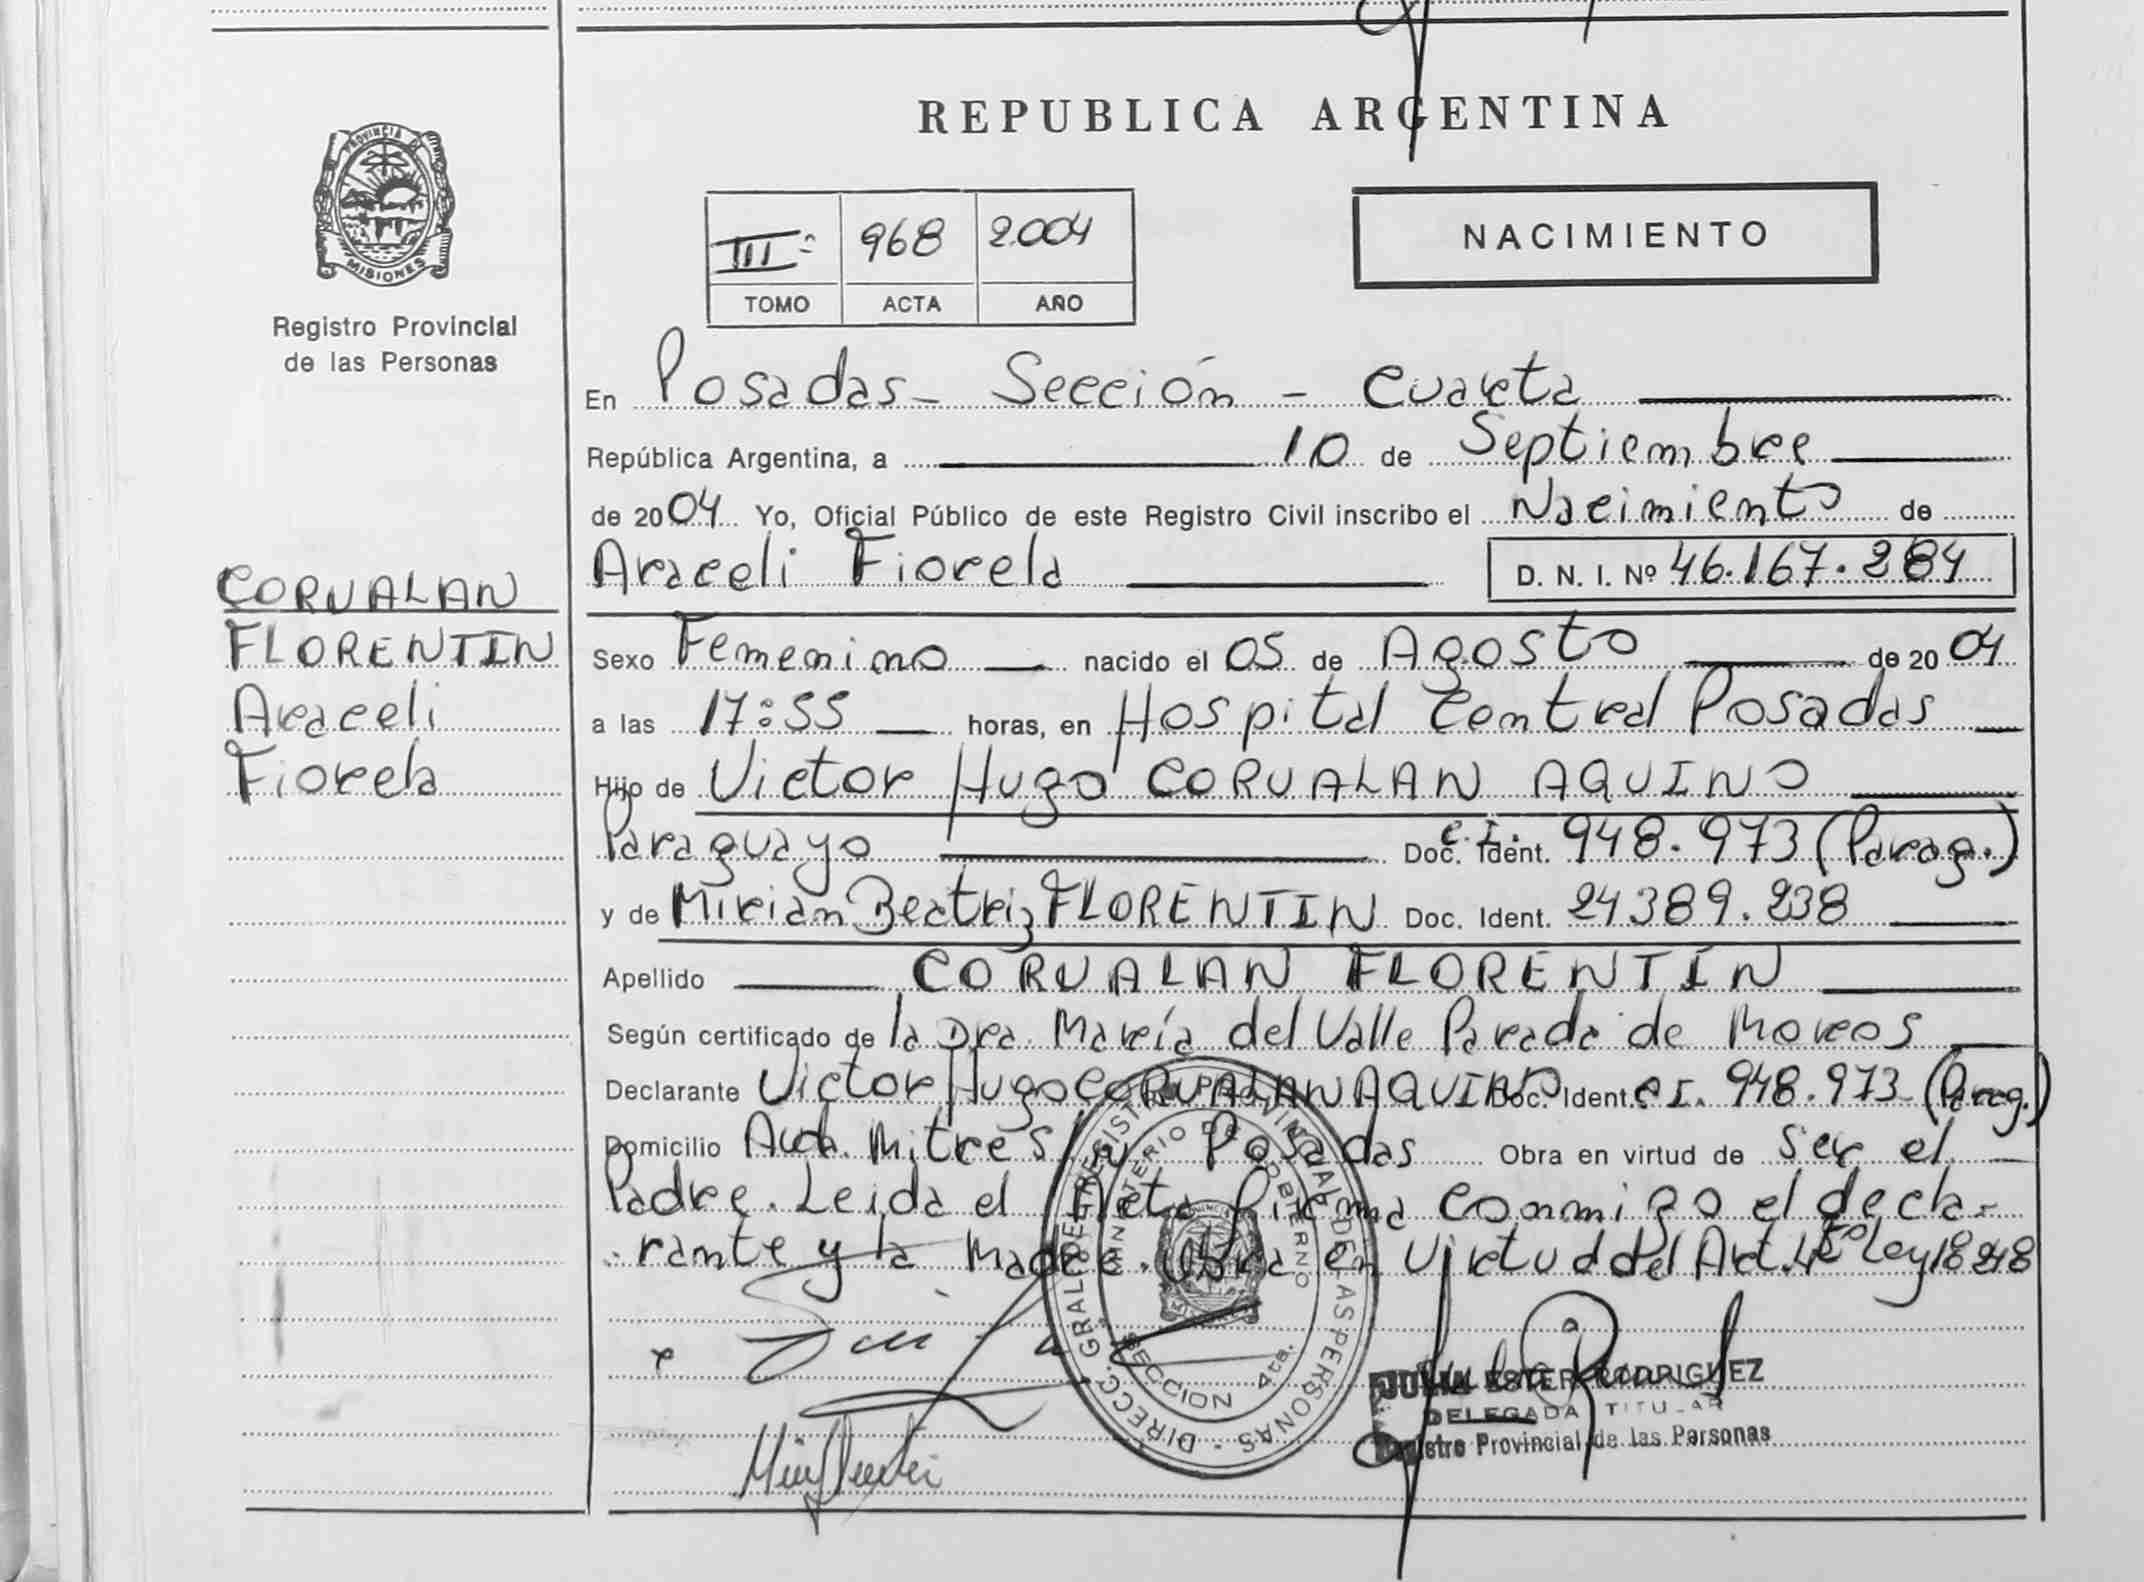 REPUBLICA ARGENTINA
PROVINCIA DE
MISIONES
Registro Provincial
de las Personas
III 968 2.004
TOMO ACTA AÑO
NACIMIENTO
En Posadas - Sección - Cuarta
República Argentina, a 10 de Septiembre
de 2004 Yo, Oficial Público de este Registro Civil inscribo el Nacimiento de
Araceli Fiorela D. N. I. Nº 46.167.284
CORVALAN
FLORENTIN
Araceli
Fiorela
Sexo Femenino nacido el 05 de Agosto de 2004
a las 17:55 horas, en Hospital Central Posadas
Hijo de Victor Hugo CORVALAN AQUINO
Paraguayo Doc. Ident. C.I. 948.973 (Parag.)
y de Mirian Beatriz FLORENTIN Doc. Ident. 24389.238
Apellido CORVALAN FLORENTÍN
Según certificado de la Dra. María del Valle Parada de
Declarante Victor Hugo CORVALAN AQUINO Doc. Ident. C.I. 948.973 (Parag.)
Domicilio Avda. Mitre S/N Posadas Obra en virtud de ser el
Padre. Leida el Acta firma conmigo el decla-
rante y la Madre. Obra en Virtud del Art. Ley 18248
DIRECC. GRAL. DE REGISTRO PROVINCIAL DE LAS PERSONAS
MINISTERIO DE GOBIERNO
SECCION 4ta.
JULIA ESTER RODRIGUEZ
DELEGADA TITULAR
Registro Provincial de las Personas